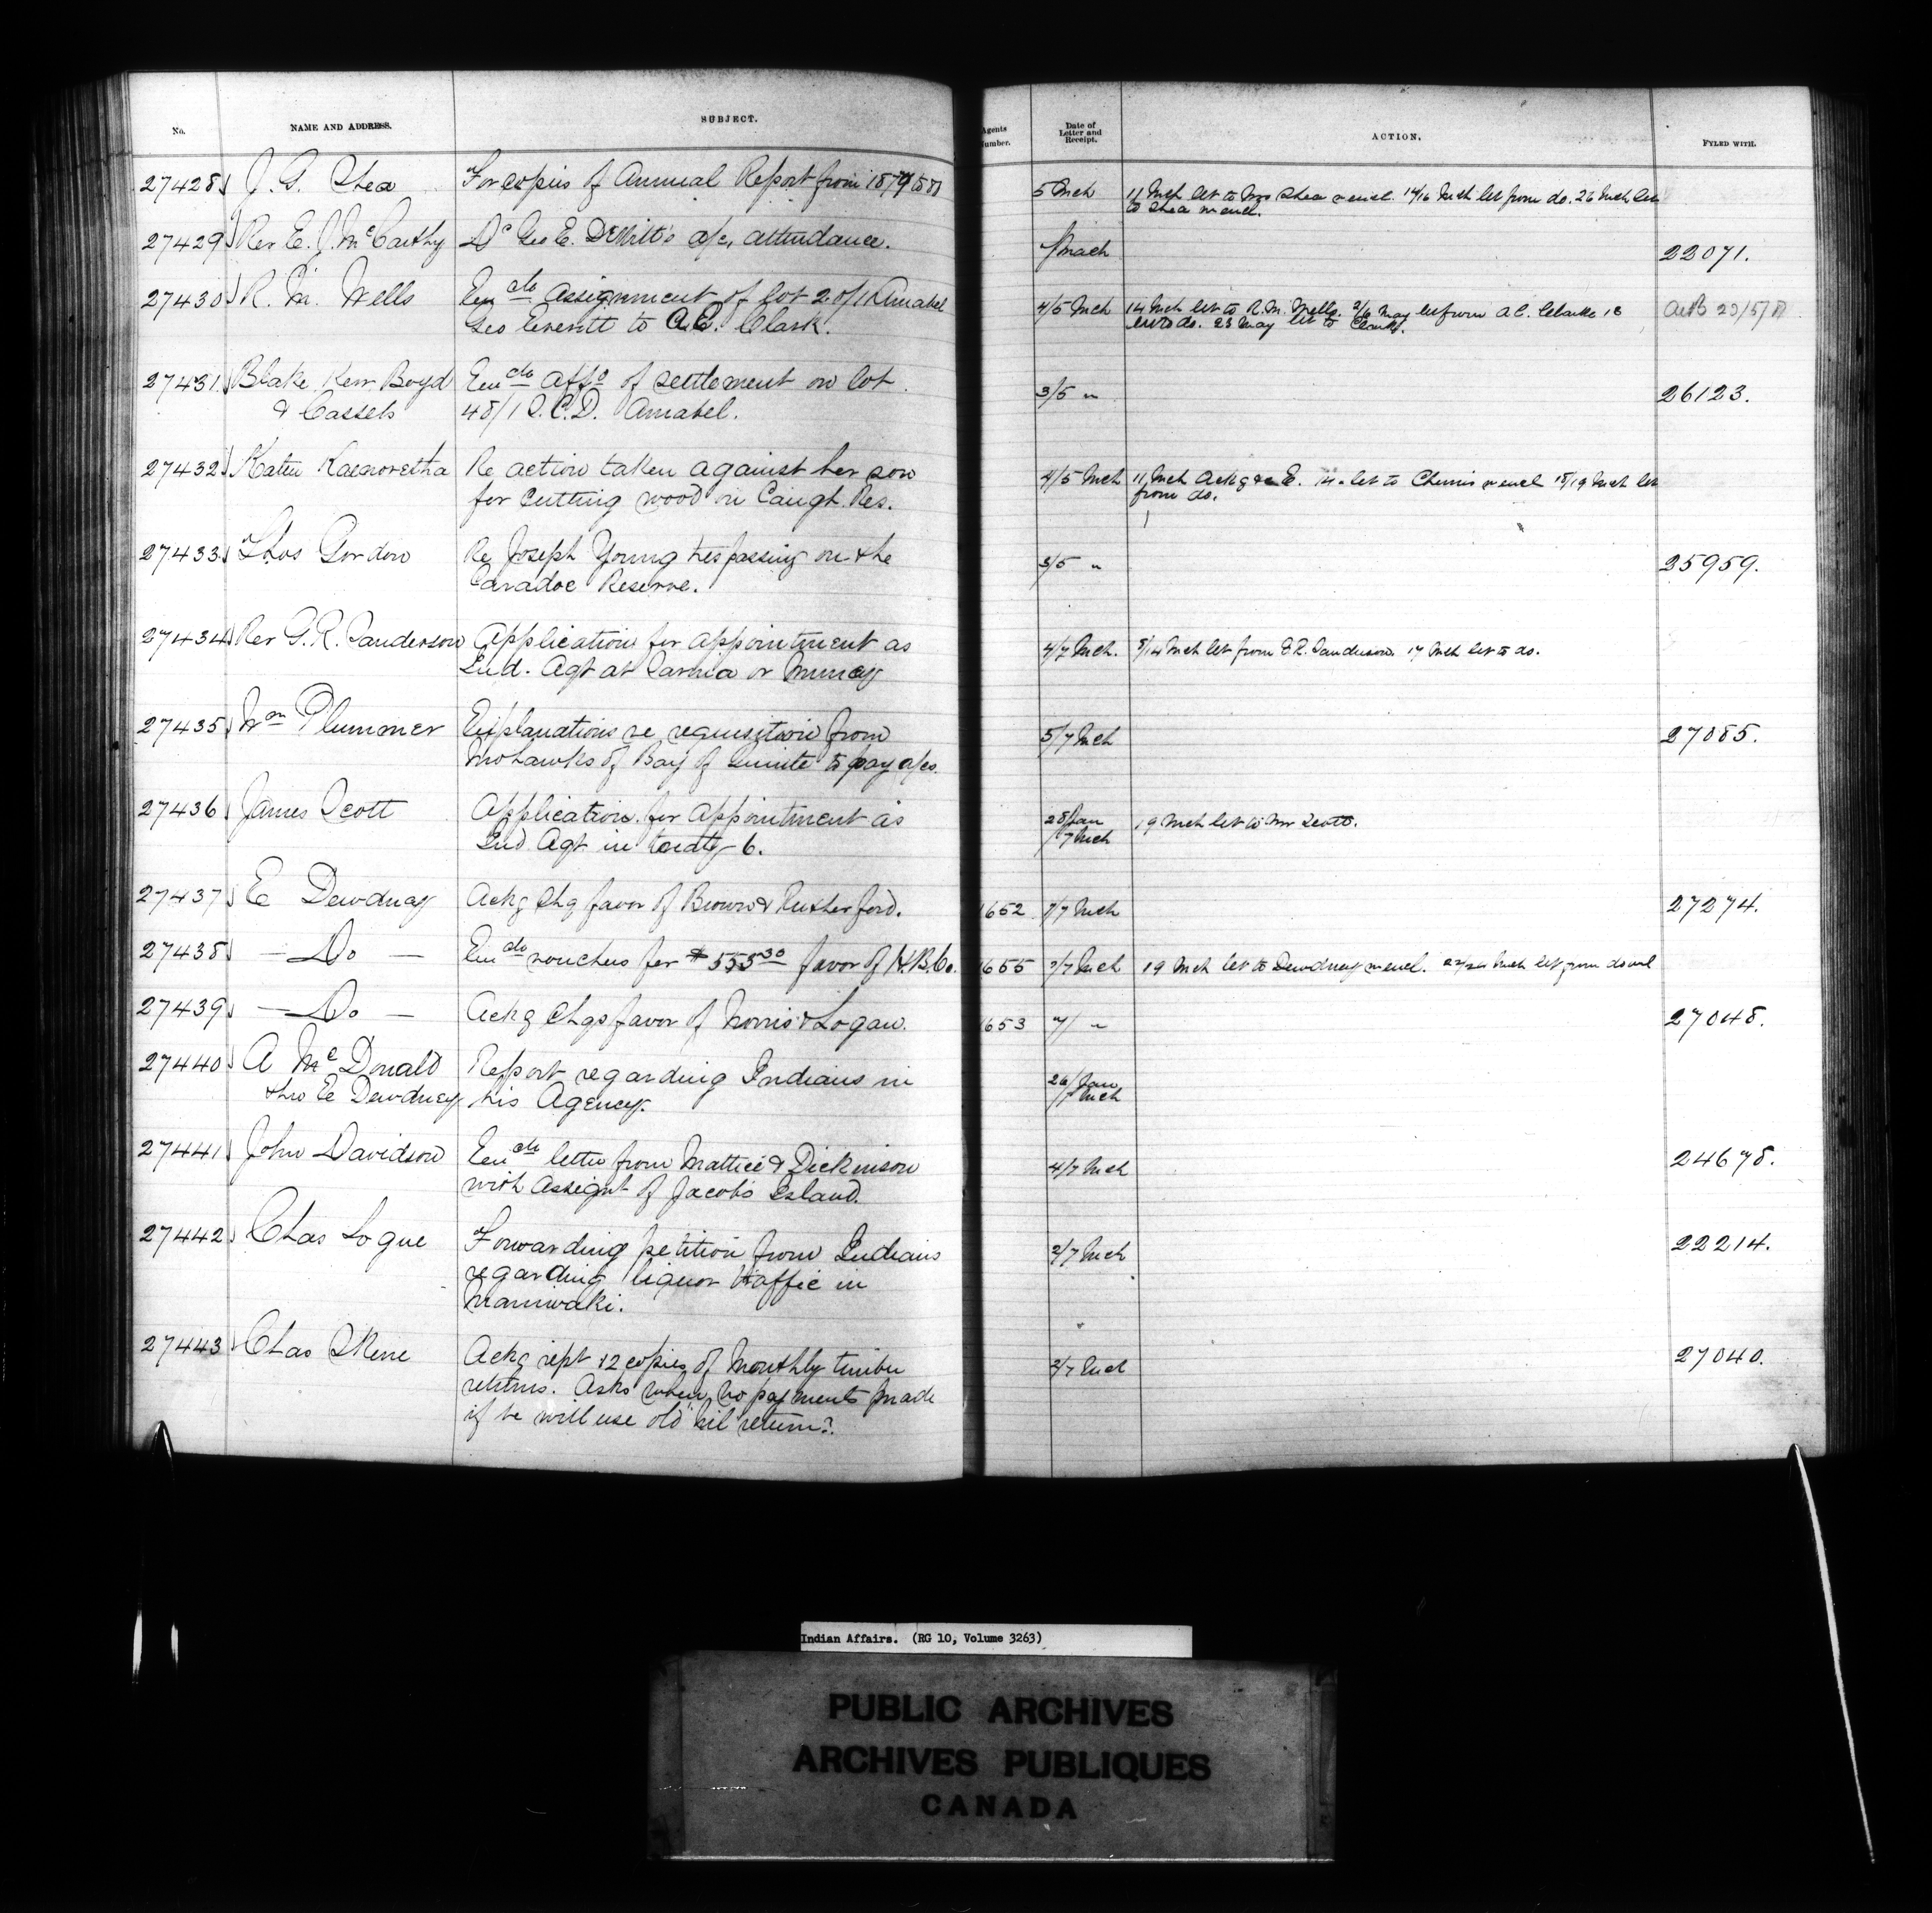 No. NAME AND ADDRESS. SUBJECT. Agents Number. Date of Letter and Receipt. ACTION. FYLED WITH.
27428 J. G. Shea For copies of Annual Report from 1879 to 81 5 Mch 11 Mch let to Mrs Shea w encl. 14/16 Mch let from do. 26 Mch let
to Shea w encl.
27429 Rev E. J. McCarthy Dr Geo E. DeWitt's a/c, attendance. 22071.
27430 R. M. Wells Enclo assignment of lot 2 of 11 Amabel 4/5 Mch 14 Mch let to R. M. Wells. 2/6 May let from A C. Clarke 18
Geo Everett to A.C. Clark. let to do. 23 May let to Clark.
27431 Blake Kerr Boyd Enclo affd of settlement on lot 3/5 " 26123.
& Cassels 48/1 S.C.D. Amabel.
27432 Katu Re action taken against her son 4/5 Mch 11 Mch Ackg E. 14 " let to w encl 18/19 Mch let
for cutting wood on Caugh. Res. from do.
27433 Thos Gordon Re Joseph Young trespassing on the 3/5 " 25959.
Caradoc Reserve.
27434 Rev G. R. Sanderson Application for appointment as 4/7 Mch. 8/14 Mch let from G R. Sanderson. 17 Mch let to do.
Ind. Agt at Sarnia or Muncey
27435 Wm Plummer Explanations re requisition from 5/7 Mch 27085.
Mohawks of Bay of Quinte to pay a/cs.
27436 James Scott Application for appointment as 28/Jan 19 Mch let to Mr Scott.
Ind Agt in treaty 6. /7 Mch
27437 E Dewdney Ackg Chq favor of Brown & Rutherford. 1652 7/7 Mch 27274.
27438 — Do — Enclo vouchers for $555 30 favor of H.B.Co. 1655 7/7 Mch 19 Mch let to Dewdney w encl. 22/24 Mch let from do
27439 — Do — Ackg Chqs favor of Norris & Logan. 1653 7/ " 27048.
27440 A McDonald Report regarding Indians in 26/Jan
thro E Dewdney his Agency. /7 Mch
27441 John Davidson Enclo letter from Mattice & Dickinson 4/7 Mch 24678.
with Assignt of Jacob's Island.
27442 Chas Logue Forwarding petition from Indians 2/7 Mch 22214.
regarding liquor traffic in
Maniwaki.
27443 Chas Skene Ackg rcpt 12 copies of Monthly timber 2/7 Mch 27040.
returns. Asks when no payments made
if he will use old "nil" return?
Indian Affairs. (RG 10, Volume 3263)
PUBLIC ARCHIVES
ARCHIVES PUBLIQUES
CANADA